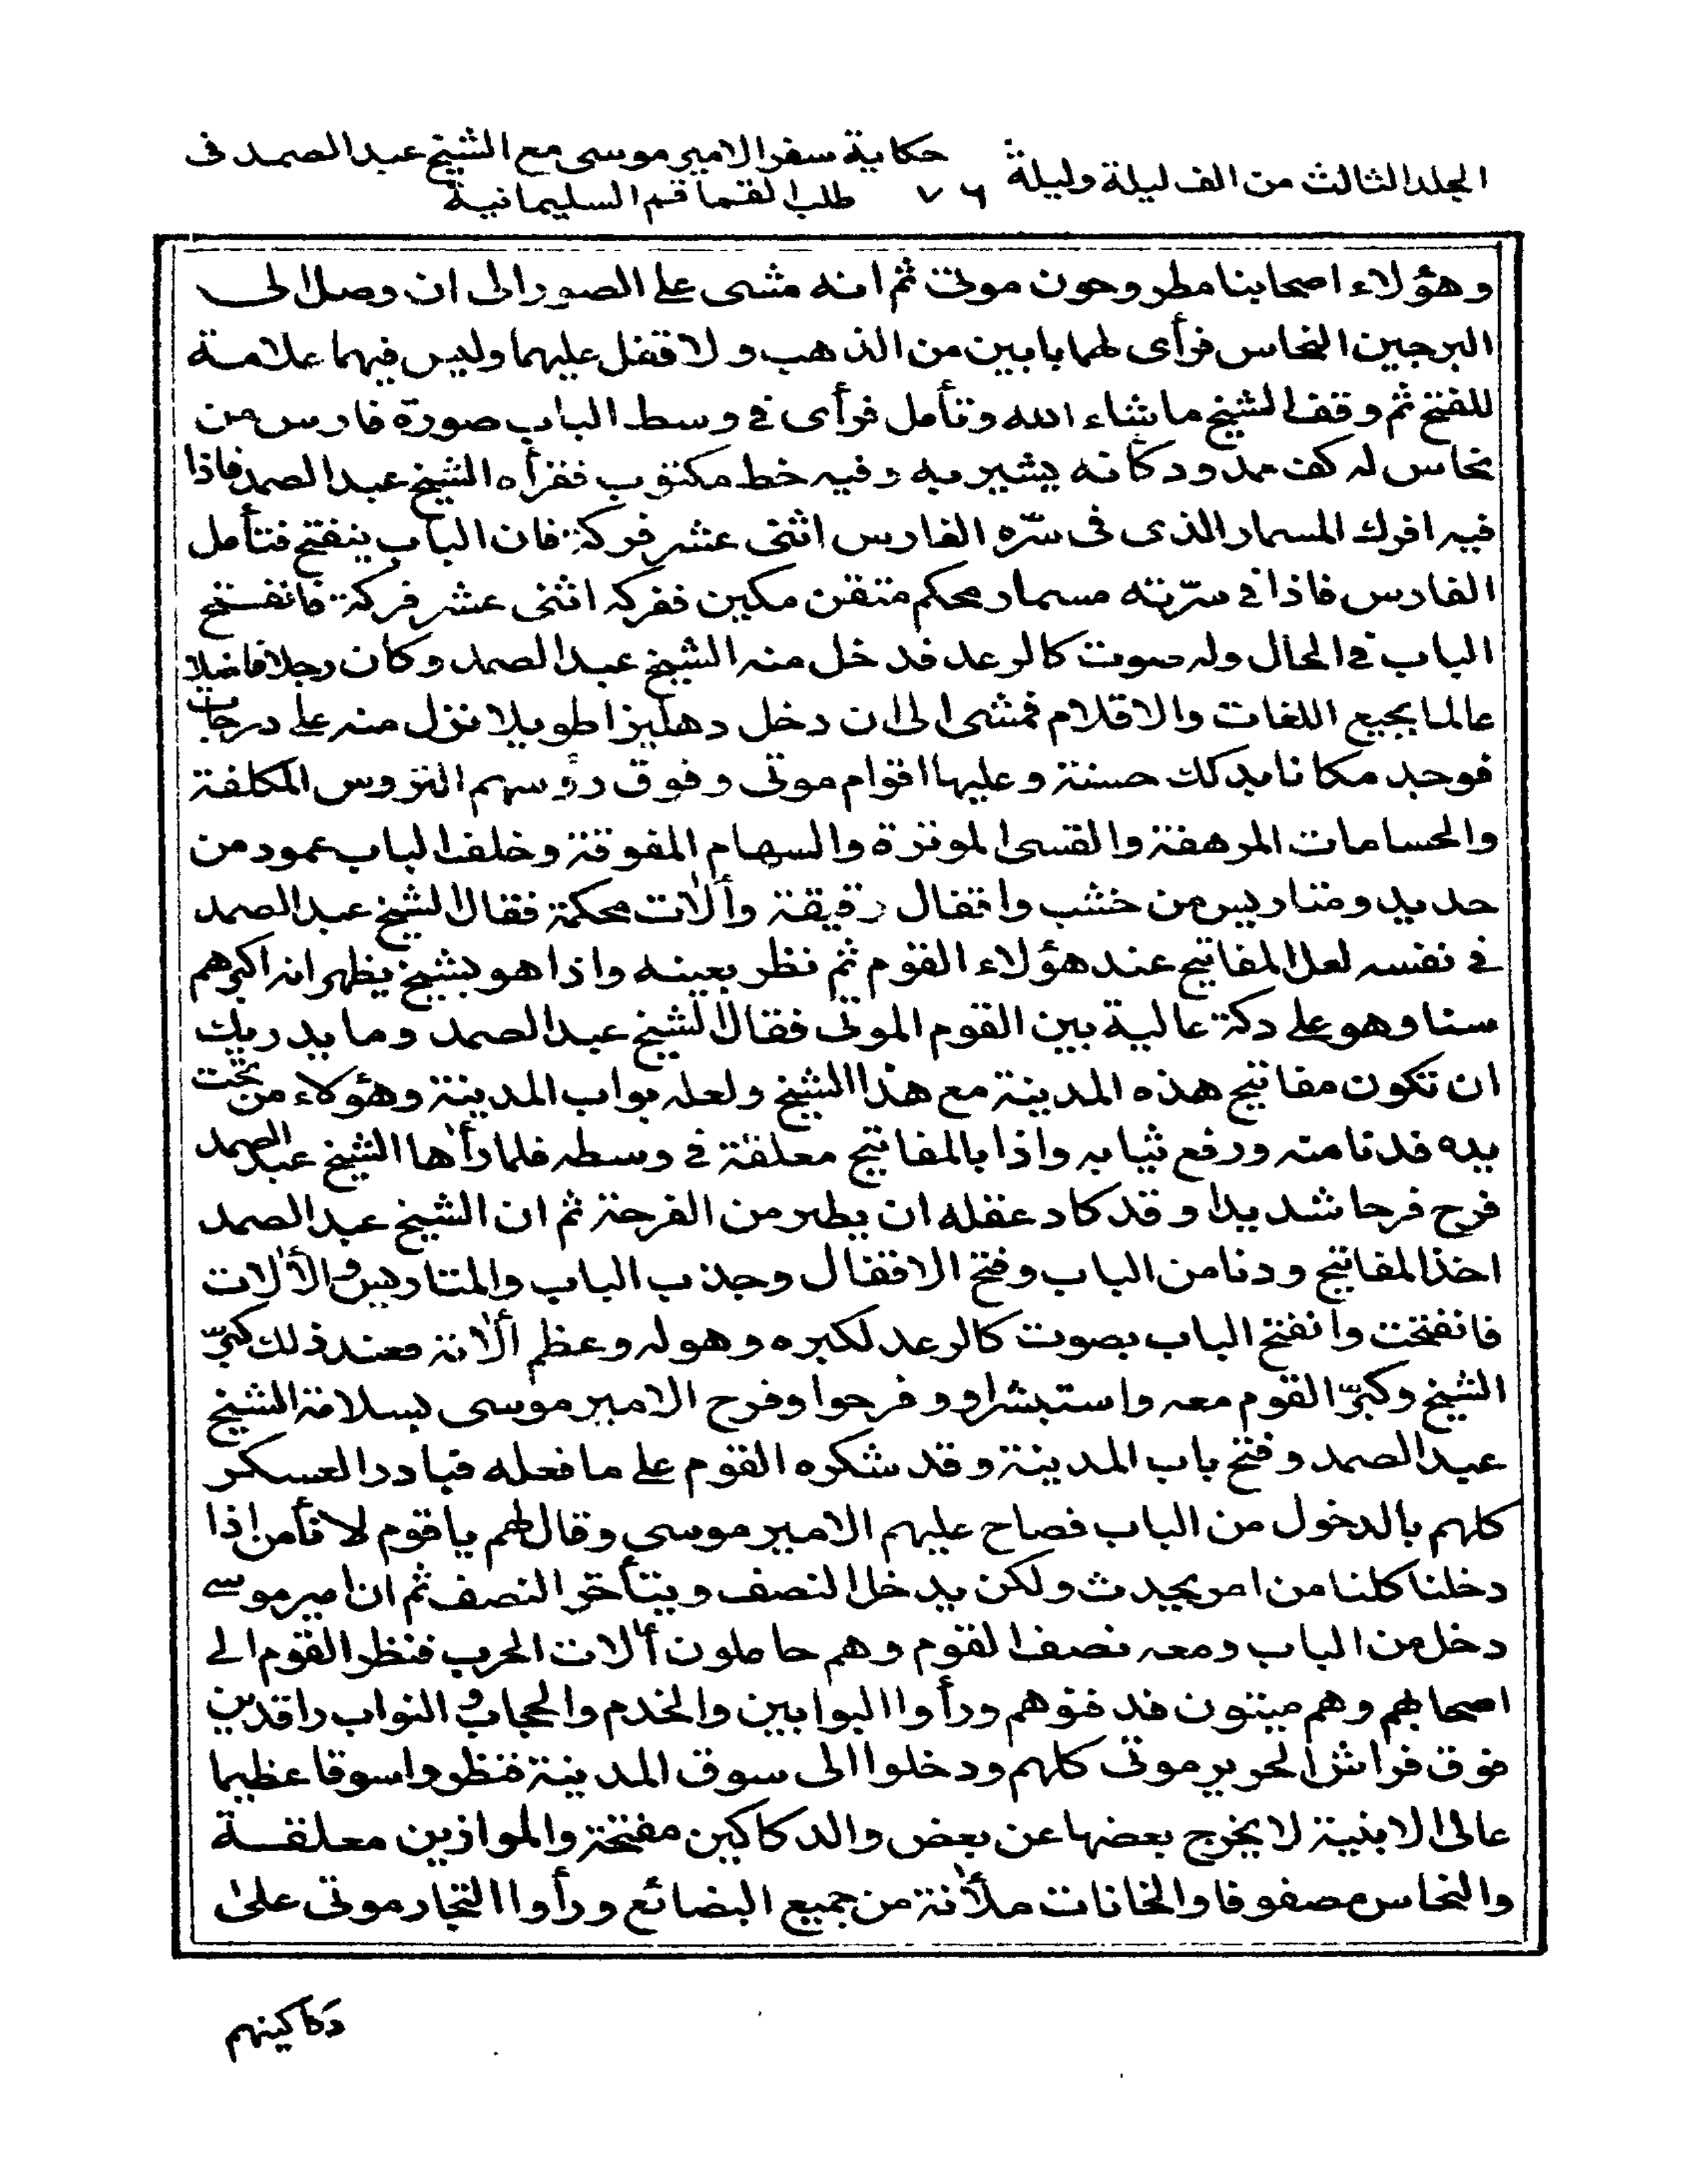 الجلد الثالث من الف ليلة وليلة ٧٦ حكاية سفر الامير موسى مع الشيخ عبد الصمد فى
طلب القماقم السليمانية
وهؤلاء اصحابنا مطروحون موتى ثم انه مشى على الصور الى ان وصل الى
البرجين النحاس فرأى لهما بابين من الذهب ولا قفل عليهما وليس فيهما علامة
للفتح ثم وقف الشيخ ما شاء الله وتأمل فرأى فى وسط الباب صورة فارس من
نحاس له كف ممدود كأنه يشير به وفيه خط مكتوب فقرأه الشيخ عبد الصمد فاذا
فيه افرك المسمار الذى فى سّره الفارس اثنى عشر فركة فان الباب ينفتح فتأمل
الفارس فاذا فى سّرته مسمار محكم متقن مكين ففركه اثنى عشر فركة فانفتح
الباب فى الحال وله صوت كالرعد فدخل منه الشيخ عبد الصمد وكان رجلا فاضلا
عالما بجيع اللغات والاقلام فمشى الى ان دخل دهليزا طويلا نزل منه على درجات
فوجد مكانا بدكك حسنة وعليها اقوام موتى وفوق رؤسهم التروس المكلفة
والحسامات المرهفة والقسى الموترة والسهام المفوقة وخلف الباب عمود من
حديد ومتاريس من خشب واقفال رقيقة وألات محكمة فقال الشيخ عبد الصمد
فى نفسه لعل المفاتيح عند هؤلاء القوم ثم نظر بعينه واذا هو بشيخ يظهر انه اكبرهم
سنا وهو على دكة عالية بين القوم الموتى فقال الشيخ عبد الصمد وما يدريك
ان تكون مفاتيح هذه المدينة مع هذا الشيخ ولعله بواب المدينة وهؤلاء من تحت
يده فدنا منه ورفع ثيابه واذا بالمفاتيح معلقة فى وسطه فلما رأها الشيخ عبد الصمد
فرح فرحا شديدا وقد كاد عقله ان يطير من الفرحة ثم ان الشيخ عبد الصمد
اخذ المفاتيح ودنا من الباب وفتح الاقفال وجذب الباب والمتاريس والألات
فانفتحت وانفتح الباب بصوت كالرعد لكبره وهوله وعظم ألاته فعند ذلك كبّر
الشيخ وكبّر القوم معه واستبشراوو فرحوا وفرح الامير موسى بسلامة الشيخ
عبد الصمد وفتح باب المدينة وقد شكره القوم على ما فعله فبادر العسكر
كلهم بالدخول من الباب فصاح عليهم الامير موسى وقال لهم يا قوم لا نأمن اذا
دخلنا كلنا من امر يحدث ولكن يدخل النصف ويتأخر النصف ثم ان امير موسى
دخل من الباب ومعه نصف القوم وهم حاملون ألات الحرب فنظر القوم الى
اصحابهم وهم ميتون فدفنوهم ورأوا البوابين والخدم والحجاب والنواب راقدين
فوق فراش الحرير موتى كلهم ودخلوا الى سوق المدينة فنظروا سوقا عظيما
عالى الابنية لا يخرج بعضها عن بعض والدكاكين مفتحة والموازين معلقة
والنحاس مصفوفا والخانات ملأنة من جميع البضائع ورأوا التجار موتى على
دكاكينهم